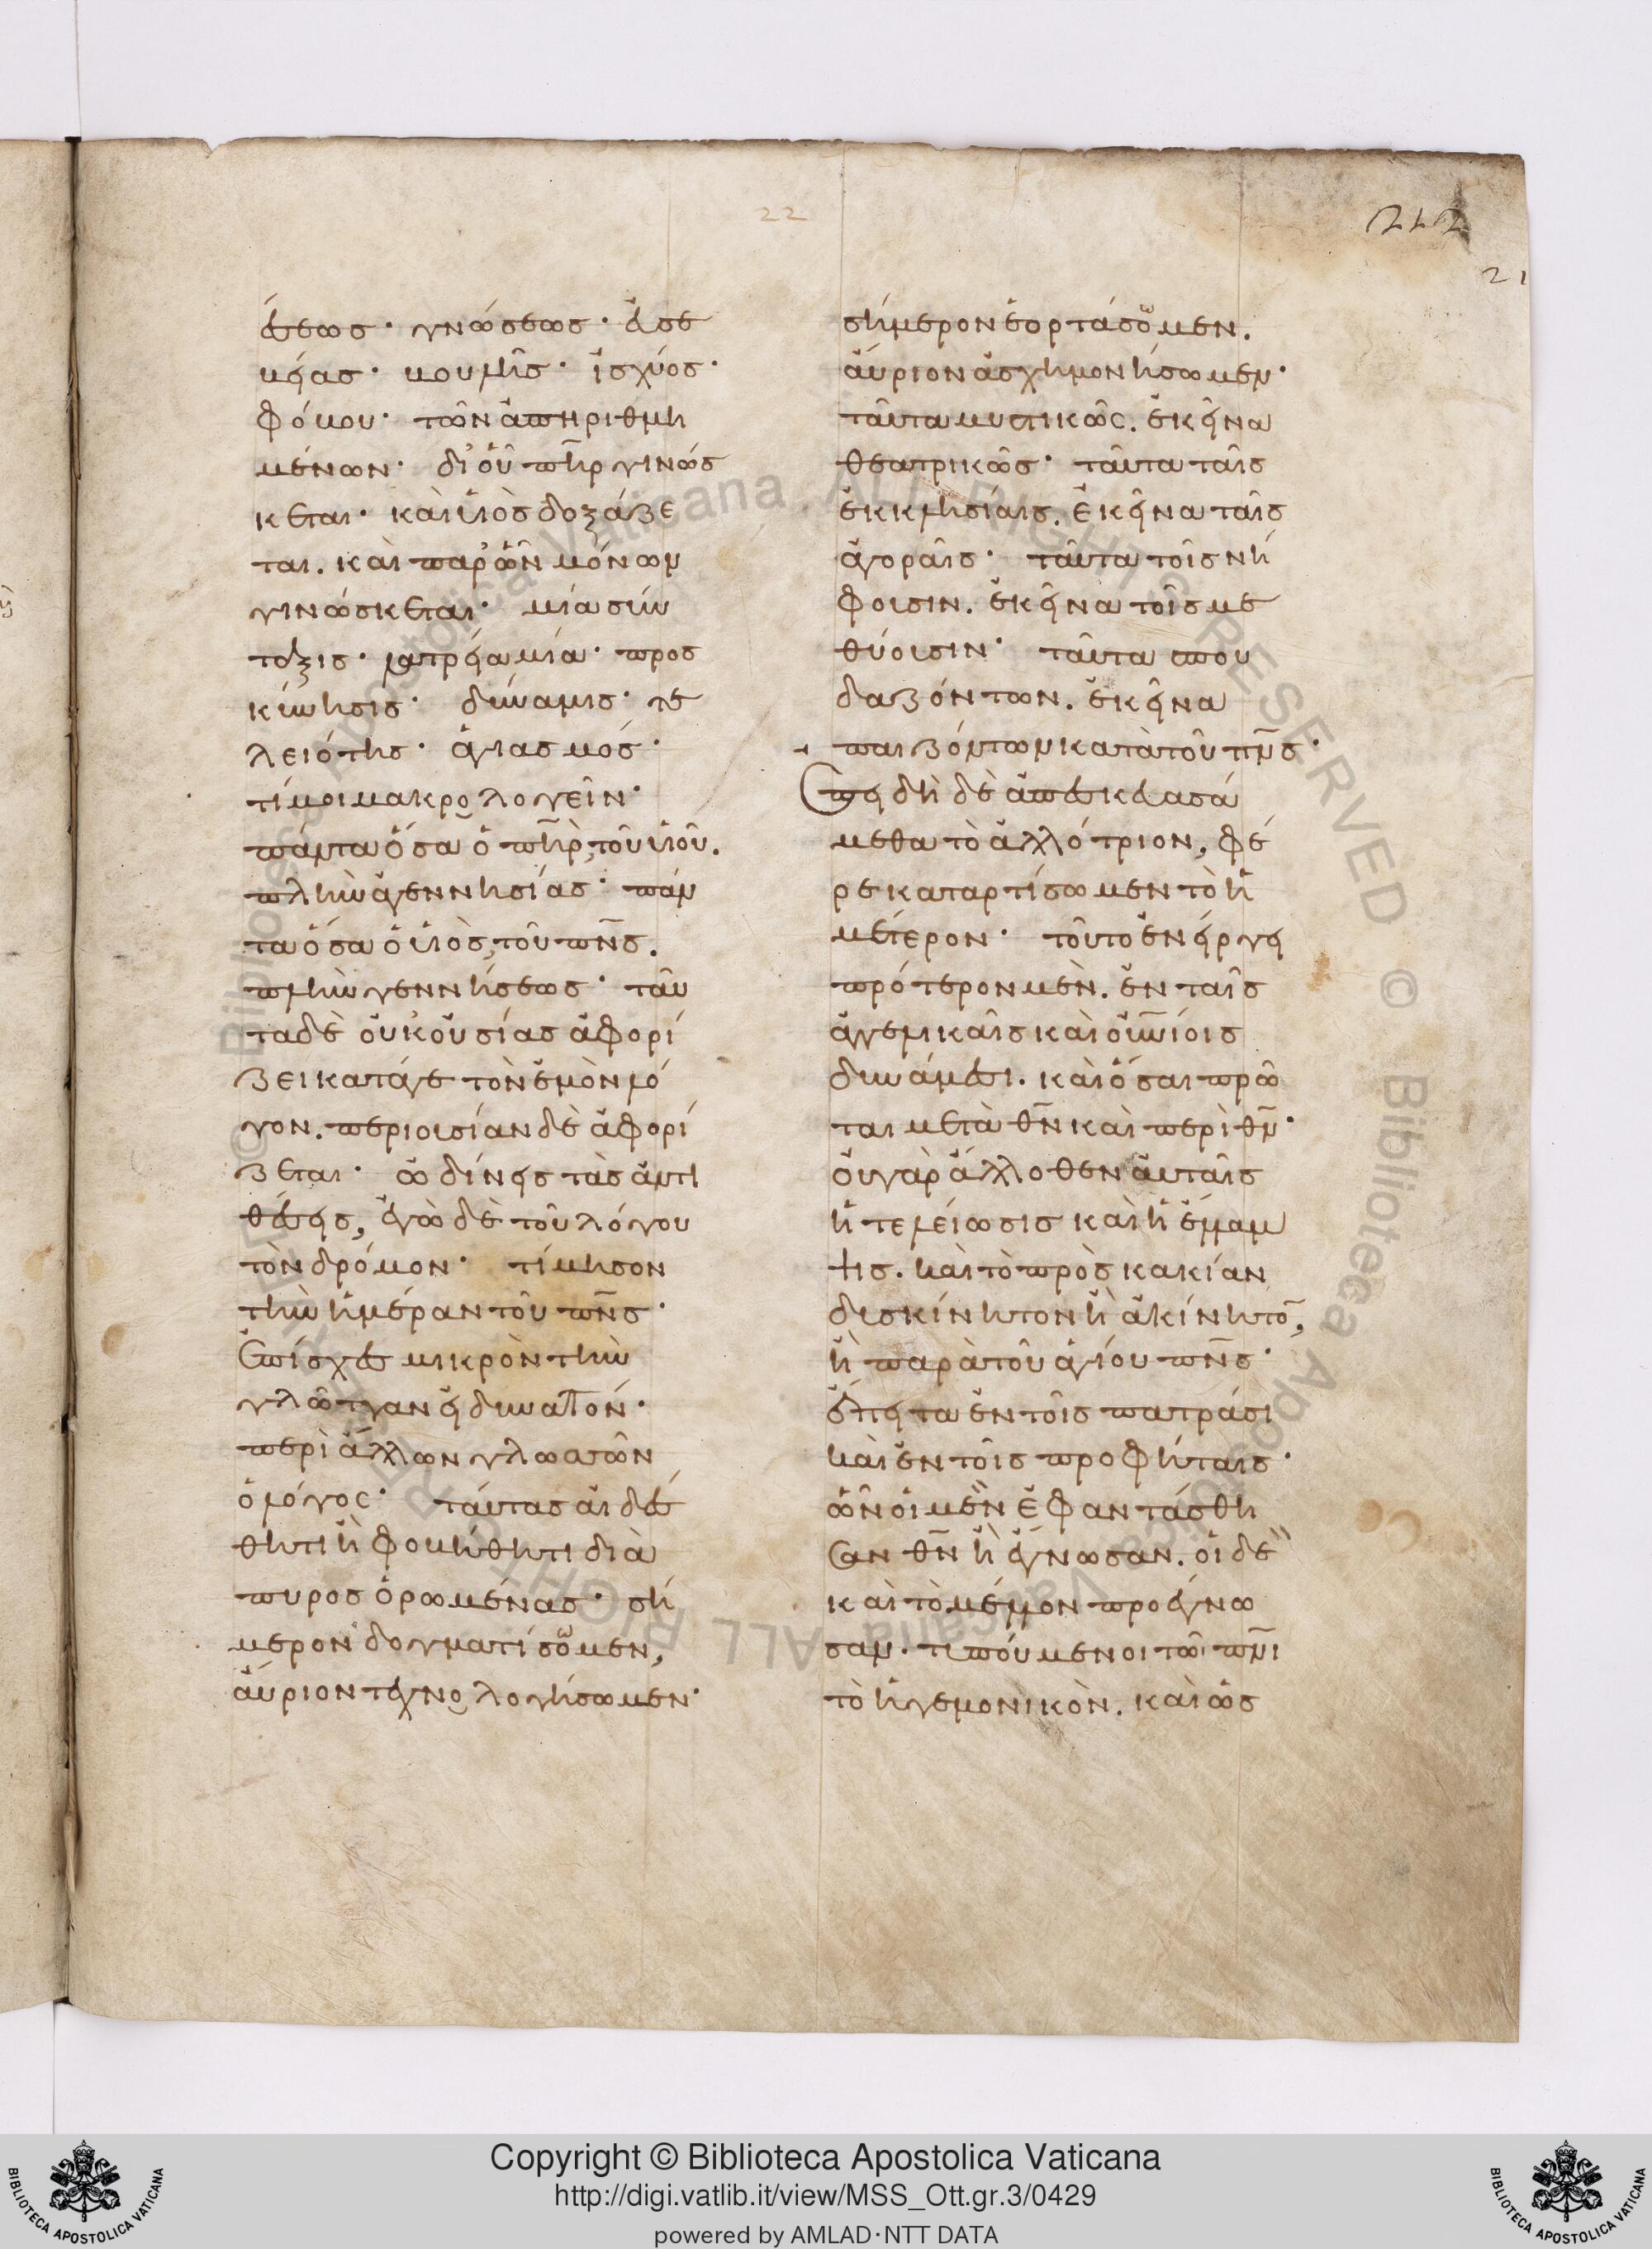 22
212
21
έσεως· γνώσεως· εὐσε
βείας· βουλῆς· ἰσχύος·
φόβου· τῶν ἀπηριθμη
μένων· δι' οὗ πη̅ρ γινώσ
κεται· καὶ υἱὸς δοξάζε
ται. καὶ παρ' ὧν μόνων
γινώσκεται· μία σύν
ταξις· λατρεία μία· προσ
κύνησις· δύναμις· τε
λειότης· ἁγιασμός·
τί μοι μακρολογεῖν·
πάντα ὅσα ὁ πη̅ρ, τοῦ υἱοῦ.
πλὴν ἀγεννησίας· πάν
τα ὅσα ὁ υἱὸς, τοῦ πν̅ς.
πλὴν γεννήσεως· ταῦ
τα δὲ οὐκ οὐσίας ἀφορί
ζει κατάγε τὸν ἐμὸν λό
γον. περι οὐσίαν δὲ ἀφορί
ζεται· ὠδίνεις τὰς ἀντι
θέσεις, ἐγὼ δὲ τοῦ λόγου
τὸν δρόμον· τίμησον
τὴν ἡμέραν τοῦ πν̅ς·
Ἐπίσχες μικρὸν τὴν
γλῶτταν εἰ δυνατόν·
περὶ ἄλλων γλωσσῶν
ὁ λόγος· ταύτας αἰδέσ
θητι ἢ φοβήθητι διὰ
πυρος ὁρωμένας· σή
μερον δογματίσωμεν,
αὔριον τεχνολογήσωμεν·
σήμερον ἑορτάσωμεν.
αὔριον ἀσχημονήσωμεν·
ταῦτα μυστικῶς. ἐκεῖνα
θεατρικῶς· ταῦτα ταῖς
ἐκκλησίαις. ἐκεῖνα ταῖς
ἀγοραῖς· ταῦτα τοῖς νή
φουσιν. ἐκεῖνα τοῖς με
θύουσιν· ταῦτα σπου
δαζόντων. ἐκεῖνα
παιζόντων κατὰ τοῦ πν̅ς·
Ἐπειδὴ δὲ ἀπεσκευασά
μεθα τὸ ἀλλότριον, φέ
ρε καταρτίσωμεν τὸ ἡ
μέτερον· τοῦτο ἐνήργει
πρότερον μὲν. ἐν ταῖς
ἀγγελικαῖς καὶ οὐ̅νίοις
δυνάμεσι. καὶ ὅσαι πρῶ
ται μετὰ θν̅ καὶ περὶ θν̅·
οὐ γὰρ ἄλλοθεν αὐταῖς
ἡ τελείωσις καὶ ἡ ἔλλαμ
ψις. καὶ τὸ πρὸς κακίαν
δυσκίνητον ἢ ἀκίνητο̅,
ἢ παρὰ τοῦ ἁγίου πν̅ς·
ἔπειτα ἐν τοῖς πατράσι
καὶ ἐν τοῖς προφήταις·
ὧν οἱ μὲν ἐφαντάσθη
σαν θν̅ ἢ ἔγνωσαν. οἱ δὲ
καὶ τὸ μέλλον προέγνω
σαν. τυπούμενοι τῶι πν̅ι
τὸ ἡγεμονικὸν. καὶ ὡς
Copyright © Biblioteca Apostolica Vaticana
http://digi.vatlib.it/view/MSS_Ott.gr.3/0429
powered by AMLAD·NTT DATA
BIBLIOTECA APOSTOLICA VATICANA
BIBLIOTECA APOSTOLICA VATICANA